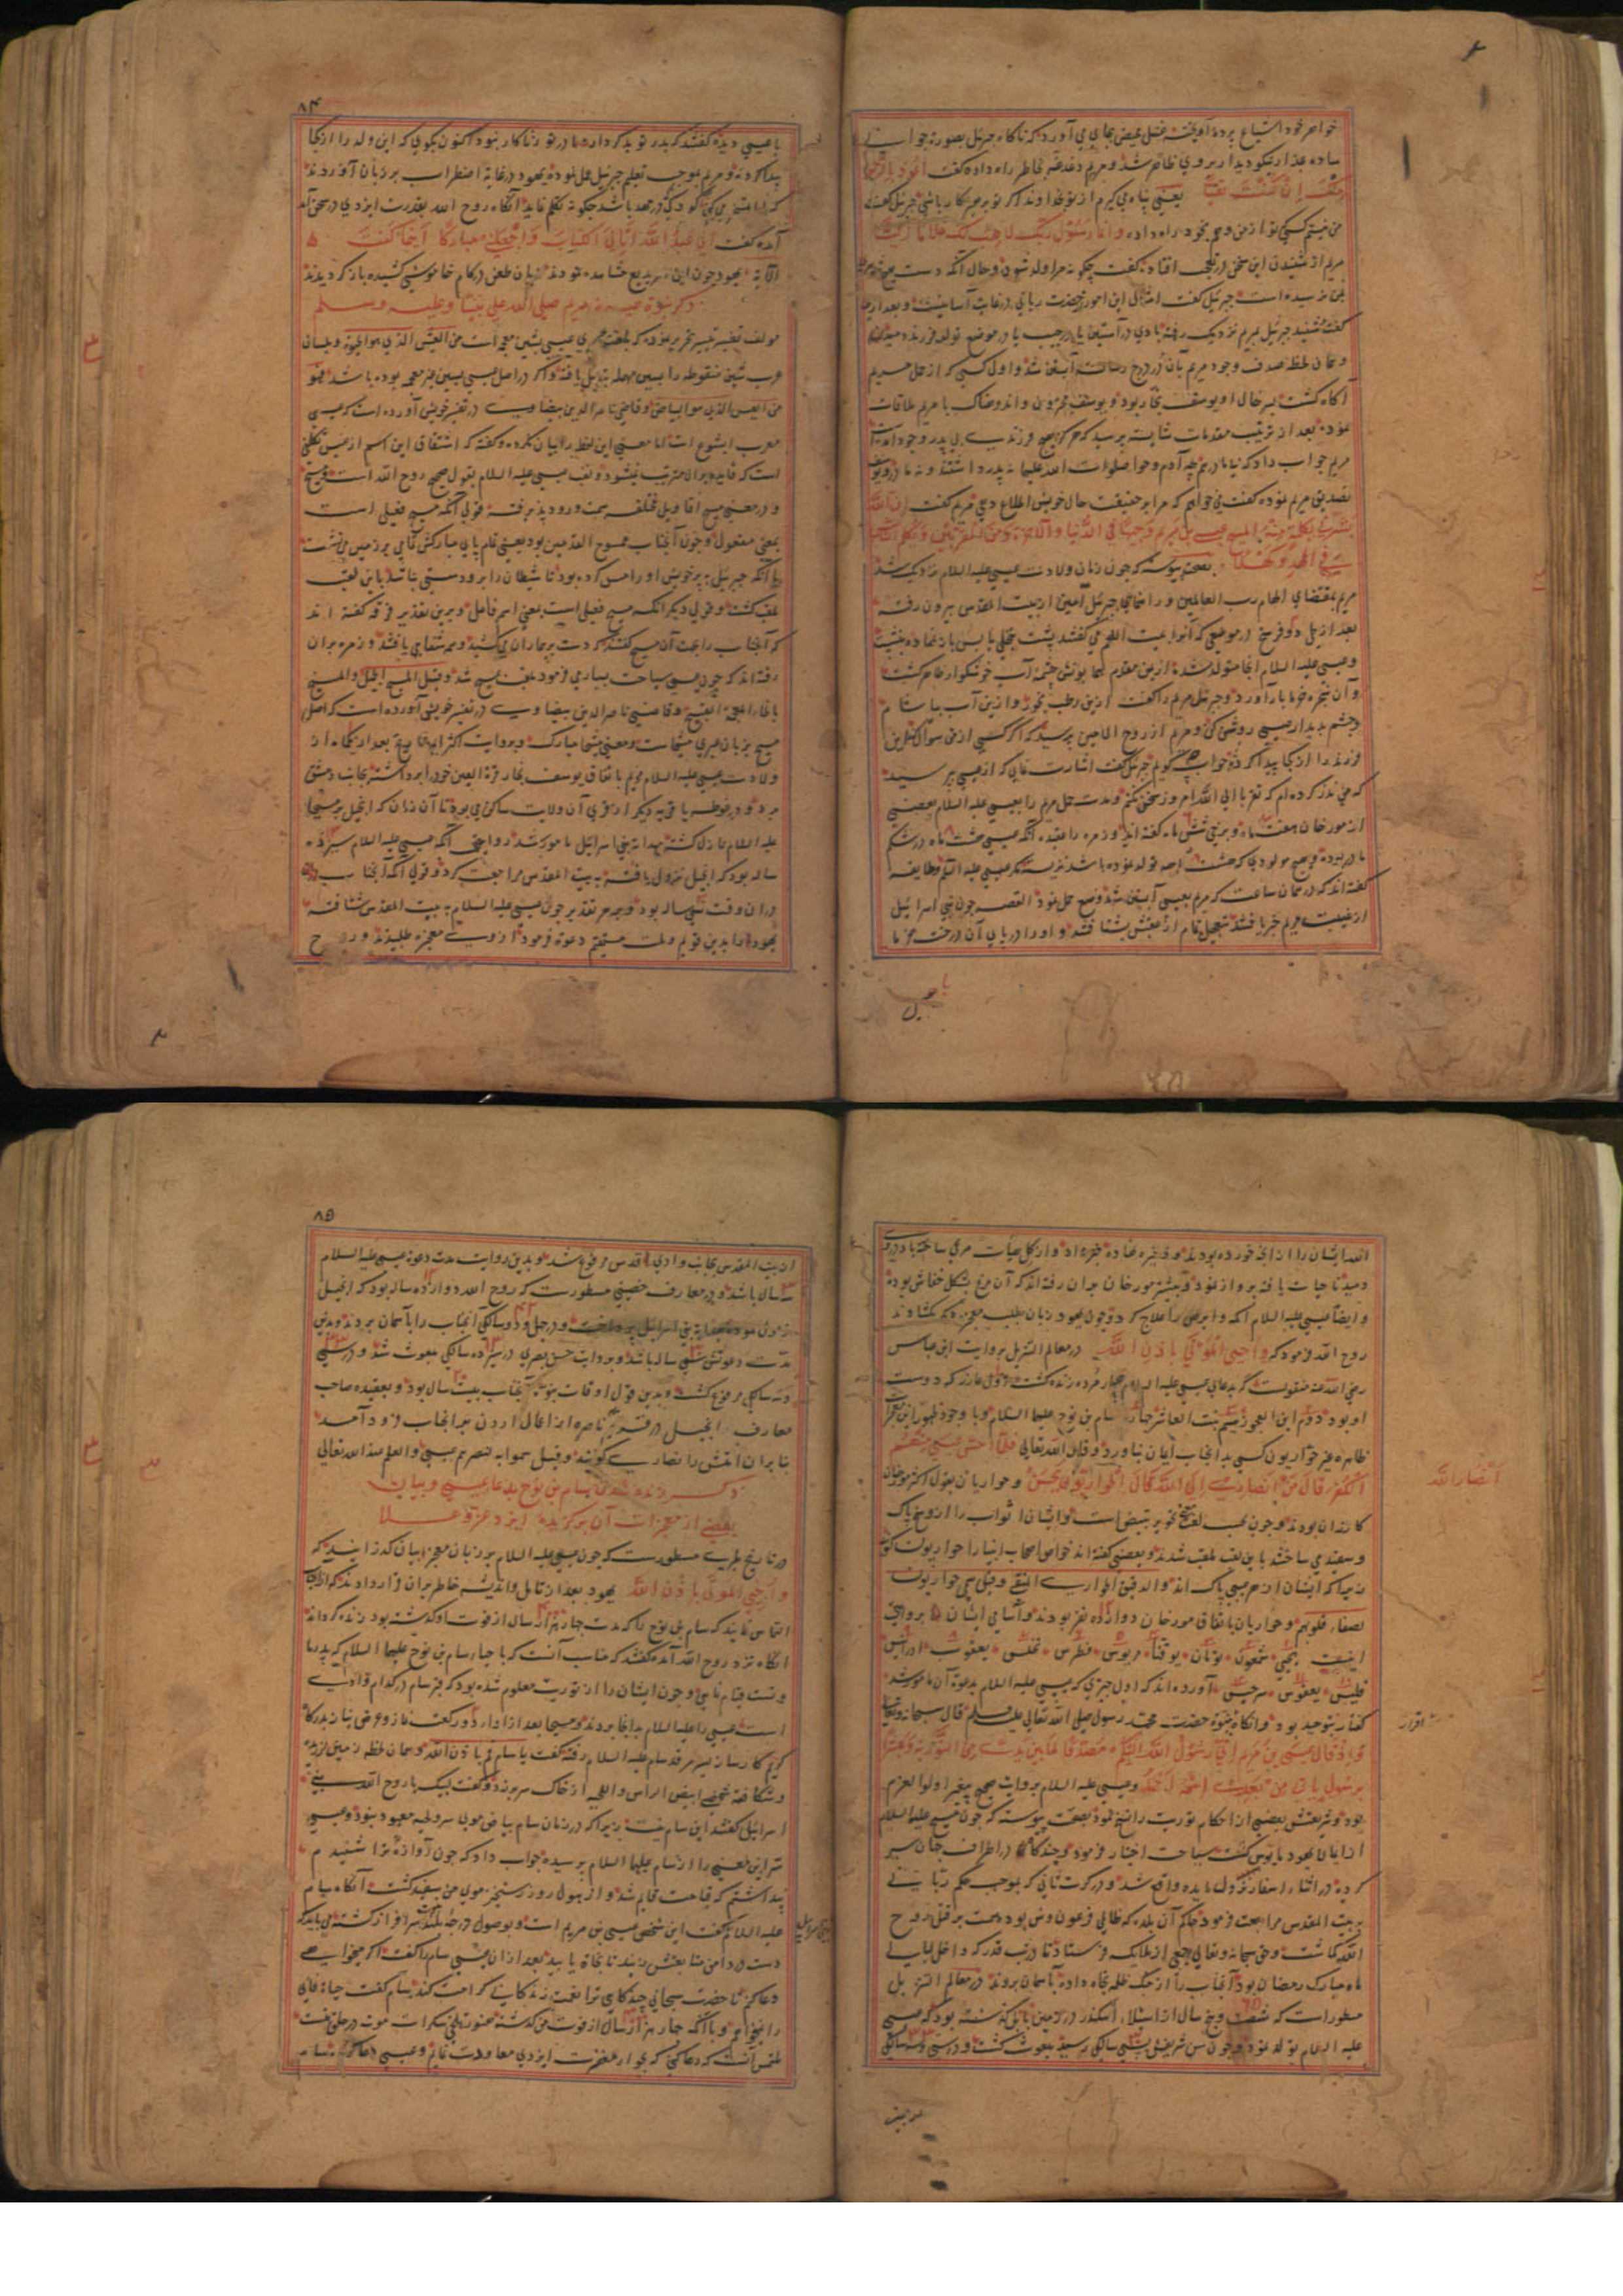 خواهر خود ایشاع پرده آویخته غسل حیض بجای می آورد که ناکاه جبرئیل بصورة جوانی
ساده عذار نیکو دیدار بروی ظاهر شد و مریم دغدغه بخاطر راه داده کفت اعوذ بالرحمن
منک ان کنت تقیا یعنی پناه می کیرم از تو بخداوند اکر تو پرهیزکار باشی جبرئیل کفت
من نیستم کسی که تو از من وهم بخود راه داده وانما رسول ربک لاهب لک غلاما زکیا
مریم از شنیدن این سخن در تعجب افتاده کفت چکونه مرا ولد شود و حال آنکه دست هیچ
بمن نرسیده است جبرئیل کفت امثال این امور بحضرت ربانی در غایت آسانیست و بعد از
کفت و شنید جبرئیل بمریم نزدیک رفته بادی در آستین یا در جیب یا در موضع تولد فرزند دمید
و همان لحظه صدف وجود مریم بآن در درج رسالت آبستن شد و اول کسی که از حمل مریم
آکاه کشت پسر خال او یوسف نجار بود و یوسف محزون و اندوهناک با مریم ملاقات
نموده بعد از ترتیب مقدمات شایسته پرسید که هرکز هیچ فرزند بی پدر وجود
مریم جواب داد که نی آدم و حوا صلوات الله علیهما نه پدر داشتند و نه مادر و یوسف
تصدیق مریم نموده کفت می خواهم که مرا بر حقیقت حال خویش اطلاع دهی مریم کفت ان الله
یبشرک بکلمة منه اسمه المسیح عیسی بن مریم وجیها فی الدنیا والآخرة ومن المقربین ویکلم الناس
فی المهد وکهلا بصحت پیوسته که چون زمان ولادت عیسی علیه السلام نزدیک شد
مریم بمقتضای الهام رب العالمین و راهنمایی جبرئیل امین از بیت المقدس بیرون رفته
بعد از طی دو فرسخ در موضعی که آنرا بیت اللحم می کفتند پشت بنخلی یابس باز نهاده بنشست
و عیسی علیه السلام آنجا متولد شده از یمن مقدم همایونش چشمه آب خوشکوار ظاهر کشت
و آن شجره خرما بار آورد و جبرئیل مریم را کفت ازین رطب بخور و ازین آب بیاشام
و چشم بدیدار عیسی روشن کن و مریم از روح الامین پرسید که اکر کسی از من سوال کند این
فرزند را از کجا پیدا کرده جواب چه کویم جبرئیل کفت اشارت نمای که از عیسی پرسید
که من نذر کرده ام که تقربا الی الله امروز سخن نکنم و مدت حمل مریم را بعیسی علیه السلام بعضی
از مورخان هفت ماه و برخی شش ماه کفته اند و زمره را عقیده آنکه عیسی هشت ماه در شکم
مادر بوده و هیچ مولودی که هشت ماهه تولد نموده باشد نزیسته مکر عیسی علیه السلام و طایفه
کفته اند که در همان ساعت که مریم بعیسی آبستن شد وضع حمل نمود القصه چون بنی اسرائیل
از غیبت مریم خبر یافتند بتعجیل تمام از عقبش بشتافتند و او را در پای آن درخت خرما
۸۴
با عیسی دیده کفتند که پدر تو بد کردار و مادر تو زناکار نبود اکنون بکوی که این ولد را از کجا
پیدا کرده و مریم بموجب تعلیم جبرئیل عمل نموده یهود در غایة اضطراب بر زبان آوردند
که کودکی که در مهد باشد چکونه تکلم نماید آنکاه روح الله بقدرت ایزدی در سخن
آمده کفت انی عبد الله اتانی الکتاب وجعلنی مبارکا اینما کنت
الآیة یهود چون این امر بدیع مشاهده نمودند زبان طعن در کام خاموشی کشیده باز کردیدند
ذکر نبوة عیسی بن مریم صلی الله علی نبینا وعلیه وسلم
مولف تفسیر تیسیر تحریر نموده که بلغت عبری عیسی بشین معجمه است من العیش الذی هو الحیوة و بلسان
عرب شین منقوطه را بسین مهمله تبدیل یافته و اکر در اصل عیسی بسین غیر معجمه بوده باشد فهو
من العیس الذی هو البیاض و قاضی ناصر الدین بیضاوی در تفسیر خویش آورده است که عیسی
معرب ایشوع است اما معنی این لفظ را بیان نکرده و کفته که اشتقاق این اسم از عیس تکلفی
است که فایده بران مترتب نمیشود و لقب عیسی علیه السلام بقول صحیح روح الله است و مسیح
و در معنی مسیح اقاویل مختلفه سمت ورود پذیرفته قولی آنکه مسیح فعیلی است
بمعنی مفعول و چون آنجناب ممسوح القدمین بود یعنی تمام پای مبارکش بر زمین می نشست
یا آنکه جبرئیل بپر خویش او را مس کرده بود تا شیطان را برو دستی نباشد باین لقب
ملقب کشت و قولی دیکر آنکه مسیح فعیلی است بمعنی اسم فاعل و برین تقدیر فرقه کفته اند
که آنجناب را بجهت آن مسیح کفتند که دست بر بیماران می کشید و همه شفا می یافتند و زمره بران
رفته اند که چون عیسی سیاحت بسیار می فرمود ملقب بمسیح شد و قیل المسیح الجمیل والمسیخ
بالخاء المعجمة القبیح و قاضی ناصر الدین بیضاوی در تفسیر خویش آورده است که اصل
مسیح بزبان عبری مشیحا است و معنی مشیحا مبارک و بروایت اکثر ارباب تاریخ بعد از
ولادت عیسی علیه السلام مریم باتفاق یوسف نجار قرة العین خود را برداشته بجانب دمشق
برد و در غوطه یا قریه دیکر از قری آن ولایت ساکن می بود تا آن زمان که انجیل بر مسیحا
علیه السلام نازل کشته بهدایة بنی اسرائیل مامور شد و روایتی آنکه عیسی علیه السلام سیزده
ساله بود که انجیل نزول یافته به بیت المقدس مراجعت کرد و قولی آنکه آنجناب
دران وقت سی ساله بود و بهر تقدیر چون عیسی علیه السلام به بیت المقدس شتافته
یهود را بدین قویم و ملت مستقیم دعوة فرمود از وی معجزه طلبیدند و روح
الله ایشان را از آنچه خورده بودند و ذخیره نهاده خبر داد و از کل هیأت مرغی ساخته باد دروی
دمید تا حیات یافته پرواز نمود و بیشتر مورخان بران رفته اند که آن مرغ بشکل خفاش بوده
و ایضا عیسی علیه السلام اکمه و ابرص را علاج کرد و چون یهود زبان بطلب معجزه دیکر کشادند
روح الله فرمود که واحیی الموتی باذن الله در معالم التنزیل بروایت ابن عباس
رضی الله عنه منقولست که بدعای عیسی علیه السلام چهار مرده زنده کشت اول عازر که دوست
او بود دوم ابن العجوز سیم بنت العاشر چهارم سام بن نوح علیهما السلام و با وجود ظهور این معجزات
ظاهره غیر حواریون کسی بدانجناب ایمان نیاورد و قال الله تعالی فلما احس عیسی منهم
الکفر قال من انصاری الی الله قال الحواریون نحن و حواریان بقول اکثر مورخان
انصار الله
کازران بودند و چون بحسب لغت حور تبییض است و ایشان اثواب را از وسخ پاک
و سفید می ساختند باین لقب ملقب شدند و بعضی کفته اند خواص اصحاب انبیا را حواریون کویند
زیرا که ایشان از هر عیبی پاک اند والدقیق الحواری النقی و قیل سمی حواریون
لصفاء قلوبهم و حواریان باتفاق مورخان دوازده نفر بودند و اسامی ایشان بروایتی
اینست یحیی شمعون تومان یوقنا مریوس فطرس نحلس یعقوب
فلیس یعقوس سرجس آورده اند که اول چیزی که عیسی علیه السلام بدعوة آن مامور شد
کفتار بتوحید بود و آنکاه بنبوة حضرت محمد رسول صلی الله تعالی علیه وسلم قال سبحانه وتعالی
اقرار
واذ قال عیسی بن مریم انی رسول الله الیکم مصدقا لما بین یدی من التوریة ومبشرا
برسول یاتی من بعدی اسمه احمد و عیسی علیه السلام بروایت صحیح پیغمبر اولوا العزم
بود و شریعتش بعضی از احکام توریت را نسخ نمود بصحت پیوسته که چون مسیح علیه السلام
از ایمان یهود مایوس کشت سیاحت اختیار فرمود و چندکاه در اطراف جهان سیر
کرده در اثناء اسفار نزول مایده واقع شد و در کرت ثانی که بموجب حکم ربانی
به بیت المقدس مراجعت فرمود حاکم آن بلده که ظالمی فرعون وش بود همت بر قتل روح
الله کماشت و حق سبحانه وتعالی جمعی از ملائکه فرستاد تا در شب قدر که داخل لیالی
ماه مبارک رمضان بود آنجناب را از چنک ظلمه نجاة داده بآسمان بردند در معالم التنزیل
مسطور است که شصت و پنج سال از استیلاء اسکندر در زمین بابل کذشته بود که عیسی
علیه السلام تولد نمود و چون سن شریفش بسی سالکی رسید مبعوث کشت و در سی و سه سالکی
۸۵
از بیت المقدس بجانب وادی اقدس مرفوع شد و بدین روایت مدت دعوة عیسی علیه السلام
سه سال باشد و در معارف حصینی مسطورست که روح الله دوازده ساله بود که انجیل
نزول نموده بهدایة بنی اسرائیل پرداخت و در چهل و دو سالکی آنجناب را بآسمان بردند و بدین
مدت دعوتش سی ساله باشد و بروایت حسن بصری در سیزده سالکی مبعوث شد و در سی
و سه سالکی مرفوع کشت و بدین قول اوقات نبوة آنجناب بیست سال بود و بعقیده صاحب
معارف انجیل در قریه ناصره از اعمال اردن بر آنجناب فرود آمد
بنا بران امتش را نصاری کویند و قیل سموا به لنصرتهم عیسی والعلم عند الله تعالی
ذکر زنده شدن سام بن نوح بدعای عیسی و بیان
بعضی از معجزات آن برکزیده ایزد عز وعلا
در تاریخ طبری مسطورست که چون عیسی علیه السلام بر زبان معجز بیان کذرانید که
واحیی الموتی باذن الله یهود بعد از تامل و اندیشه خاطر بران قرار دادند که
التماس نمایند که سام بن نوح را که مدت چهار هزار سال از فوت او کذشته بود زنده کرداند
آنکاه نزد روح الله آمده کفتند که مناسب آنست که باحیاء سام بن نوح علیهما السلام که پدر ما
و تست قیام نمایی و چون ایشان را از توریت معلوم شده بود که قبر سام در کدام وادی
است عیسی را علیه السلام بدانجا بردند و مسیحا بعد از اداء دو رکعت نماز و عرض نیاز بدرکاه
کریم کارساز بسر مرقد سام علیه السلام رفته کفت یا سام قم باذن الله و همان لحظه زمین لرزیده
و شکافته شخصی ابیض الراس واللحیه از خاک سر برزد و کفت لبیک یا روح الله بنی
اسرائیل کفتند این سام نیست زیرا که در زمان سام بیاض موی سر و لحیه معهود نبود و عیسی
سر این معنی را از سام علیهما السلام پرسیده جواب داد که چون آوازه ترا شنیدم
پنداشتم که قیامت قایم شد و از هول روز رستخیز موی من سفید کشت آنکاه سام
علیه السلام کفت این شخص عیسی بن مریم است و بوصول درجه بلند سرافراز کشته می باید که
دست در دامن متابعتش زنید تا نجاة یابید بعد ازان عیسی سام را کفت اکر میخواهی
دعا کنم تا حضرت سبحانی چندکاهی ترا بنعمت زندکانی کرامت کند سام کفت حیاة فانی
را نمیخواهم و با آنکه چهار هزار سال از فوت من کذشته هنوز تلخی سکرات موت در حلق منست
ملتمس آنست که دعا کنی که بجوار مغفرت ایزدی معاودت نمایم و عیسی دعا کرد